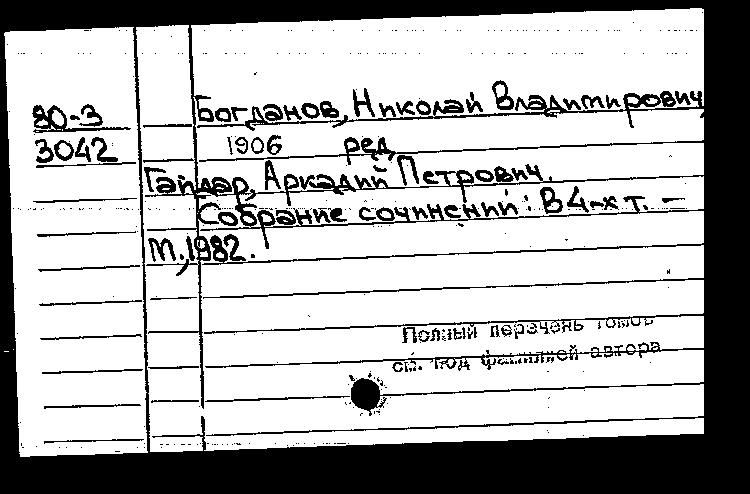 80-3
Богданов, Николай Владимирович,
3042
1906 ред.
Гайдар, Аркадий Петрович.
Собрание сочинений: В 4-х т. –
М., 1982.
Полный перечень томов
см. под фамилией автора